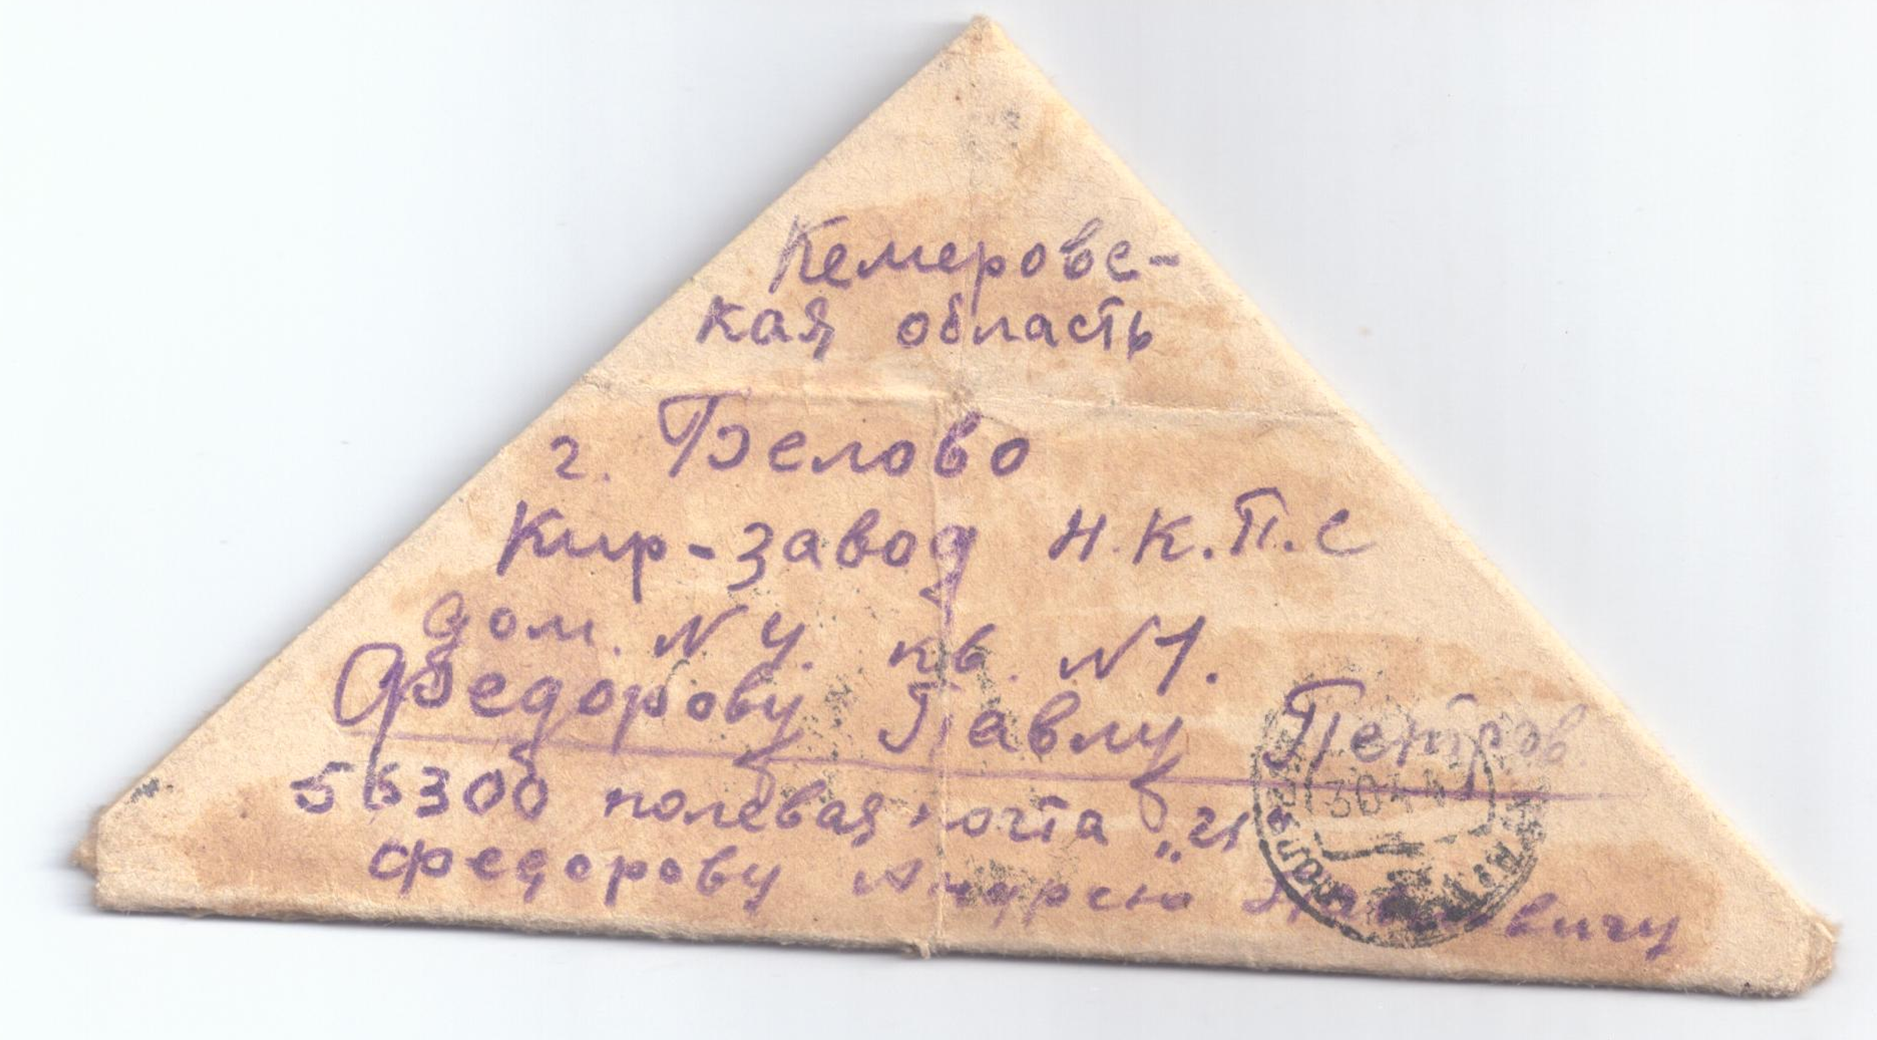 Кемеровс-
кая область
г. Белово
Кир-завод Н.К.П.С
дом. N 4. кв. N1.
Федорову Павлу Петров
56300 полевая почта „21"
Федорову Андрею Павловичу